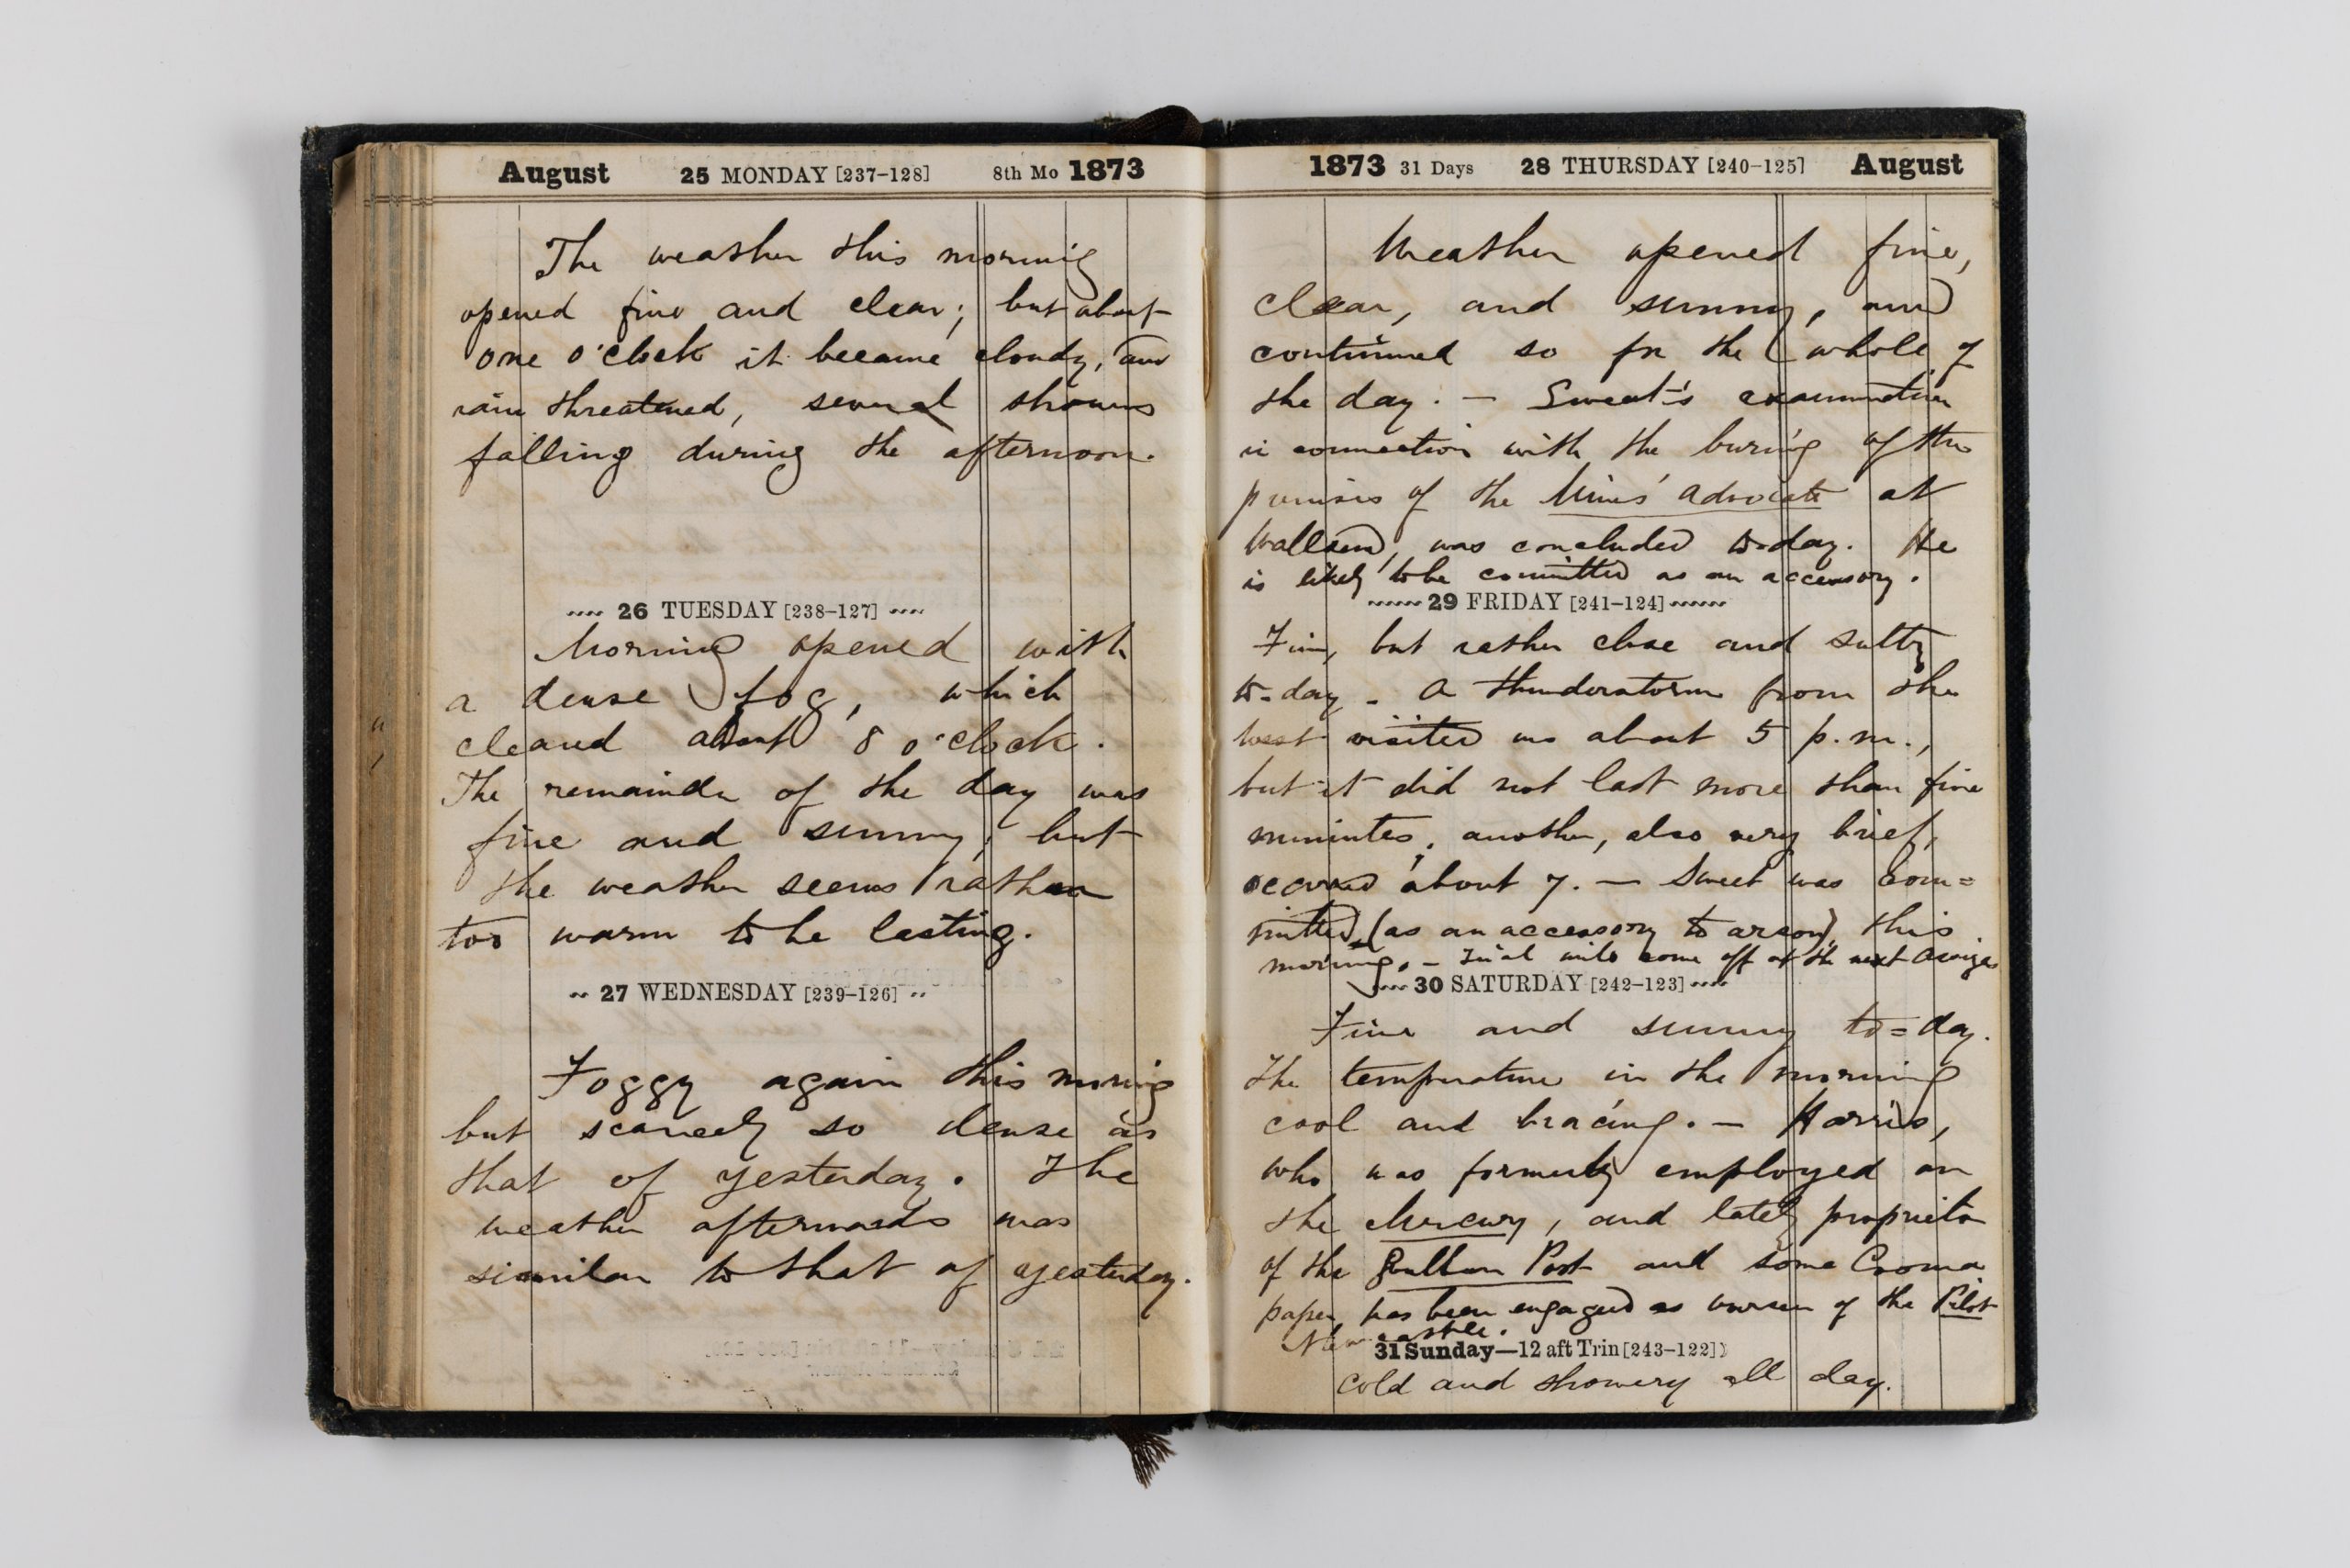 August 25 MONDAY [237-128] 8th Mo 1873
The weather this morning
opened fine and clear; but about
one o'clock it became cloudy, and
rain threatened, several showers
falling during the afternoon.
26 TUESDAY [238-127]
Morning opened with
a dense fog, which
cleared about 8 o'clock.
The remainder of the day was
fine and sunny; but
the weather seems rather
too warm to be lasting.
27 WEDNESDAY [239-126]
Foggy again this morning
but scarcely so dense as
that of yesterday. The
weather afterwards was
similar to that of yesterday.
1873 31 Days 28 THURSDAY [240-125] August
Weather opened fine,
clear, and sunny, and
continued so for the whole of
the day. — Sweet's examination
in connection with the burning of the
premises of the Miners' Advocate at
Wallsend, was concluded to-day. He
is likely to be committed as an accessory.
29 FRIDAY [241-124]
Fine, but rather close and sultry
to-day. A thunderstorm from the
West visited us about 5 p.m.,
but it did not last more than five
minutes; another, also very brief,
occurred about 7. — Sweet was com=
mitted (as an accessory to arson) this
morning. — Trial will come off at the next Assizes
30 SATURDAY [242-123]
Fine and sunny to=day.
The temperature in the morning
cool and bracing. — Harris,
who was formerly employed on
the Mercury, and lately proprietor
of the Gulben Post and some Cooma
paper, has been engaged as overseer of the Pilot
Newcastle.
31 Sunday—12 aft Trin [243-122]
Cold and showery all day.